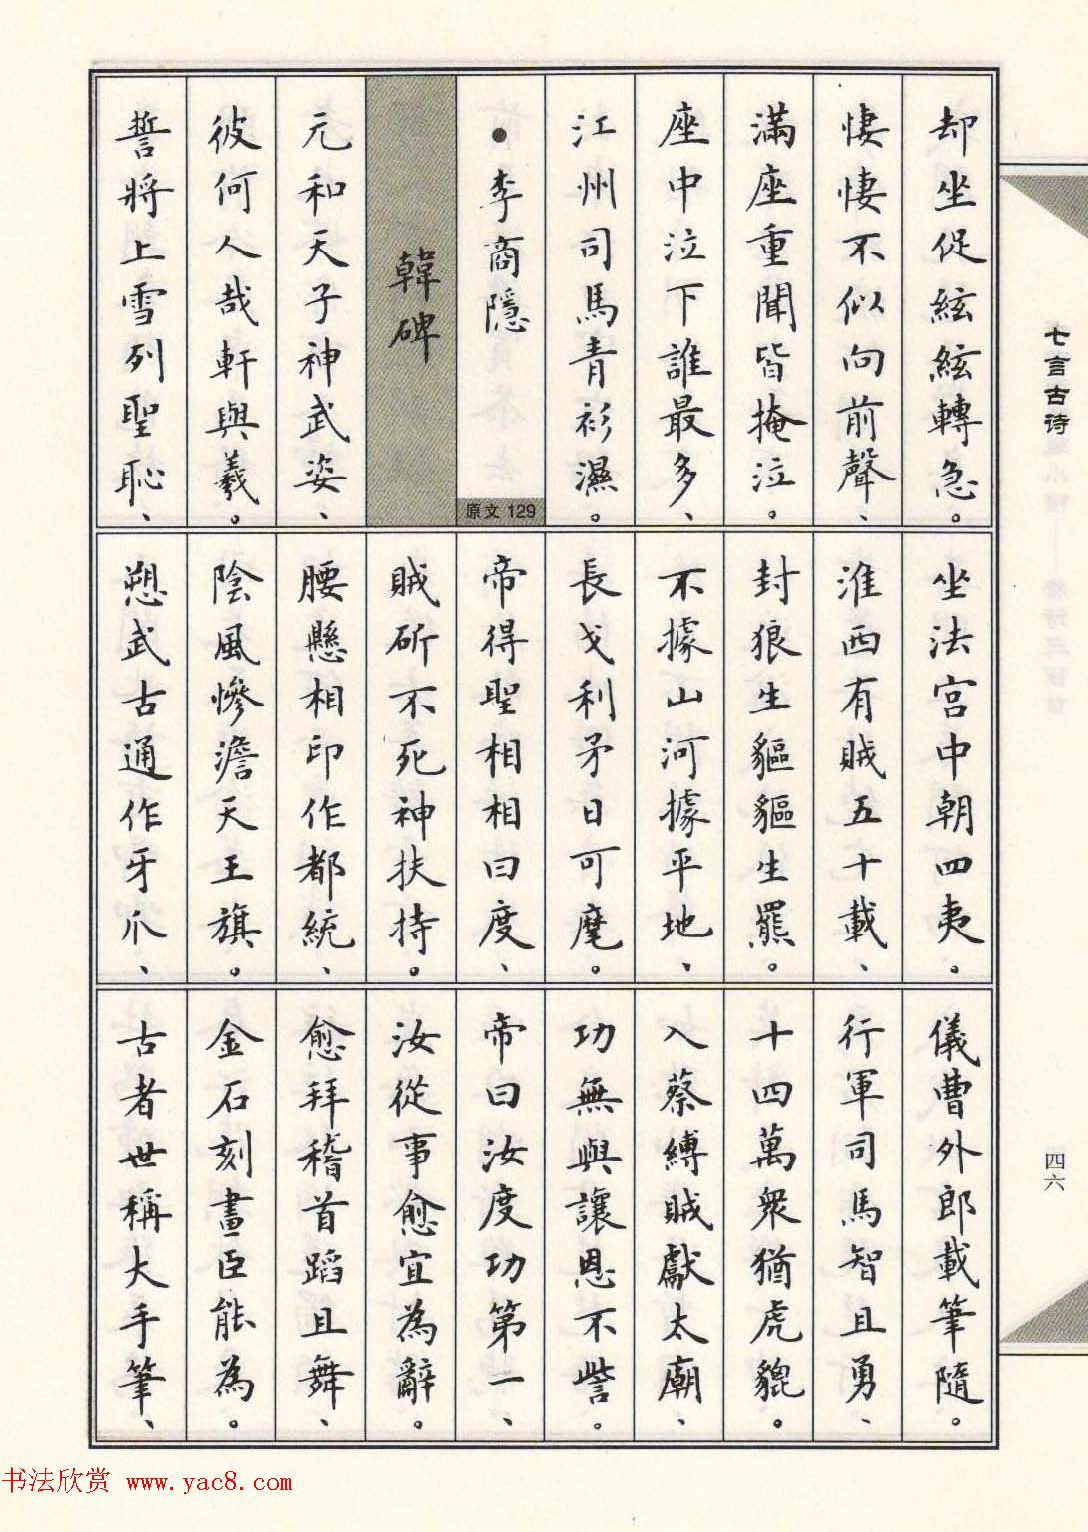 却坐促絃絃轉急。
悽悽不似向前聲、
滿座重聞皆掩泣。
座中泣下誰最多、
江州司馬青衫濕。
●李商隱
原文 129
韓碑
元和天子神武姿、
彼何人哉軒與羲。
誓將上雪列聖恥、
坐法宮中朝四夷。
淮西有賊五十載、
封狼生貙貙生羆。
不據山河據平地、
長戈利矛日可麾。
帝得聖相相曰度、
賊斫不死神扶持。
腰懸相印作都統、
陰風慘澹天王旗。
愬武古通作牙爪、
儀曹外郎載筆隨。
行軍司馬智且勇、
十四萬衆猶虎貔。
入蔡縛賊獻太廟、
功無與讓恩不訾。
帝曰汝度功第一、
汝從事愈宜為辭。
愈拜稽首蹈且舞、
金石刻畫臣能為。
古者世稱大手筆、
七言古诗
四六
书法欣赏 www.yac8.com